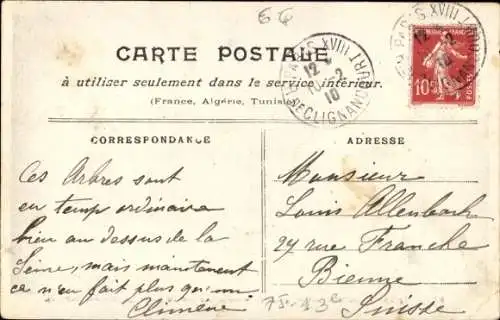 6Q
CARTE POSTALE
à utiliser seulement dans le service intérieur.
(France, Algérie, Tunisie)
PARIS XVIII
12
2
10
R. CLIGNANCOURT
PARIS XVIII
12
2
10
10c
POSTES
CORRESPONDANCE
Ces Arbres sont
en temp ordinaire
bien au dessus de la
Seine, mais maintenant
ce n'en fait plus qu'un
ADRESSE
Monsieur
Louis Allenbach
27 rue Franche
Bienne
Suisse